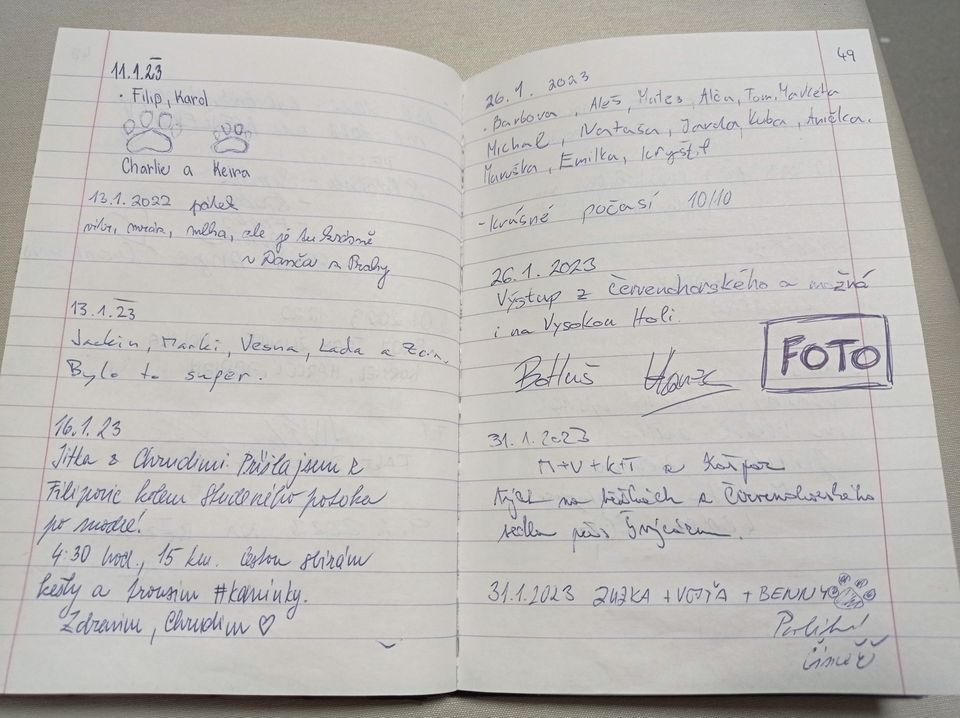 11.1.23
· Filip, Karol
Charlie a Keira
13.1.2022 pátek
vítr, mraz, mlha, ale je tu krásně
Danča z Prahy
13.1.23
Jackin, Marki, Vesna, Lada a
Bylo to super.
16.1.23
Jitka z Chrudimi. Přišla jsem z
Filipovic kolem Studeného potoka
po modré!
4:30 hod., 15 km. Cestou sbírám
kešky a trousím #kamínky.
Zdravím, Chrudim ♡
49
26.1.2023
· Barbora, Aleš, Mates, Alča, Tom, Markéta
Michal, Nataša, Jarda, Kuba, Anička.
Maruška, Emilka, Kryštof
-krásné počasí 10/10
26.1.2023
Výstup z Červenohorského a možná
i na Vysokou Holi.
FOTO
31.1.2023
M+V+K+T a Kašpar
na běžkách z Červenohorského
sedla přes Švýcárnu.
31.1.2023 ZUZKA + VOJTA + BENNY